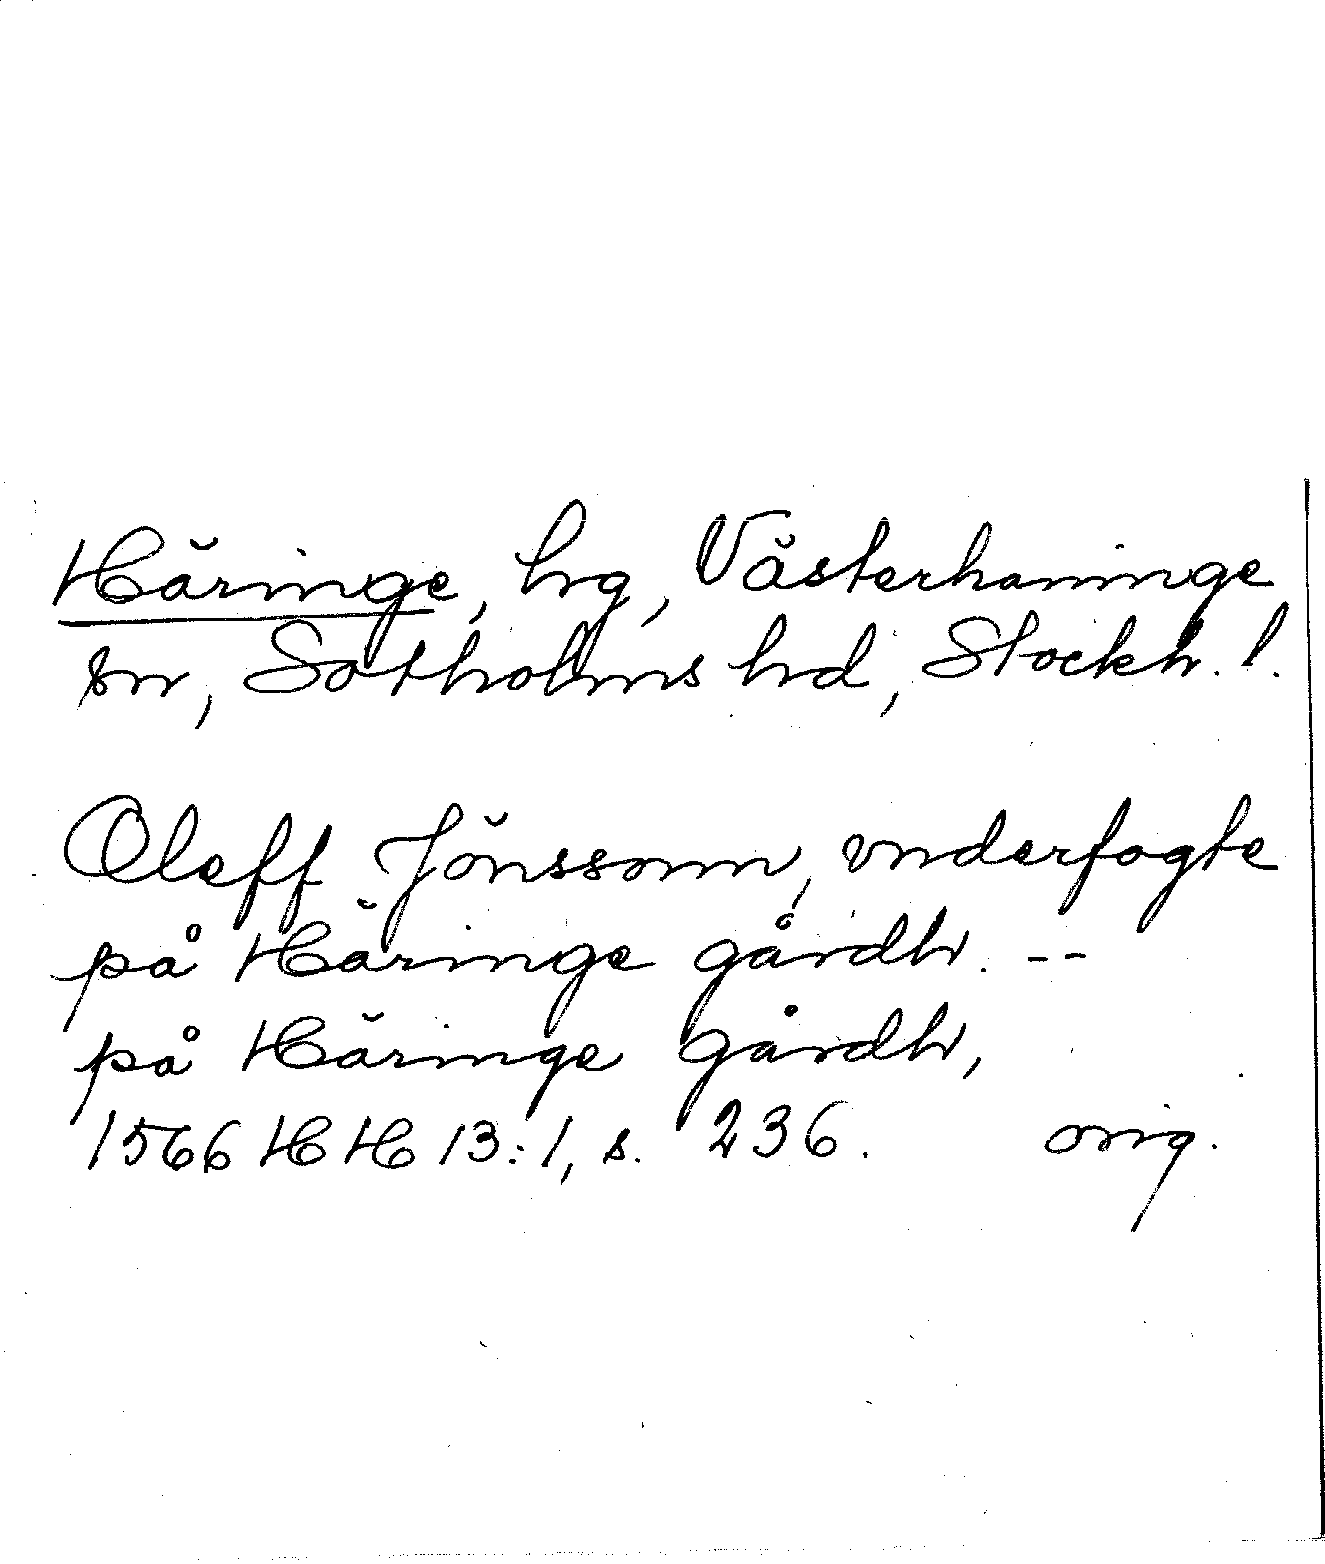 Häringe, hrg, Västerhaninge
sn, Sotholms hd, Stockh. l.
Oleff Jönssonn, vnderfogte
på Häringe gårdh. --
på Häringe gårdh,
1566 HH 13:1, s. 236. orig.